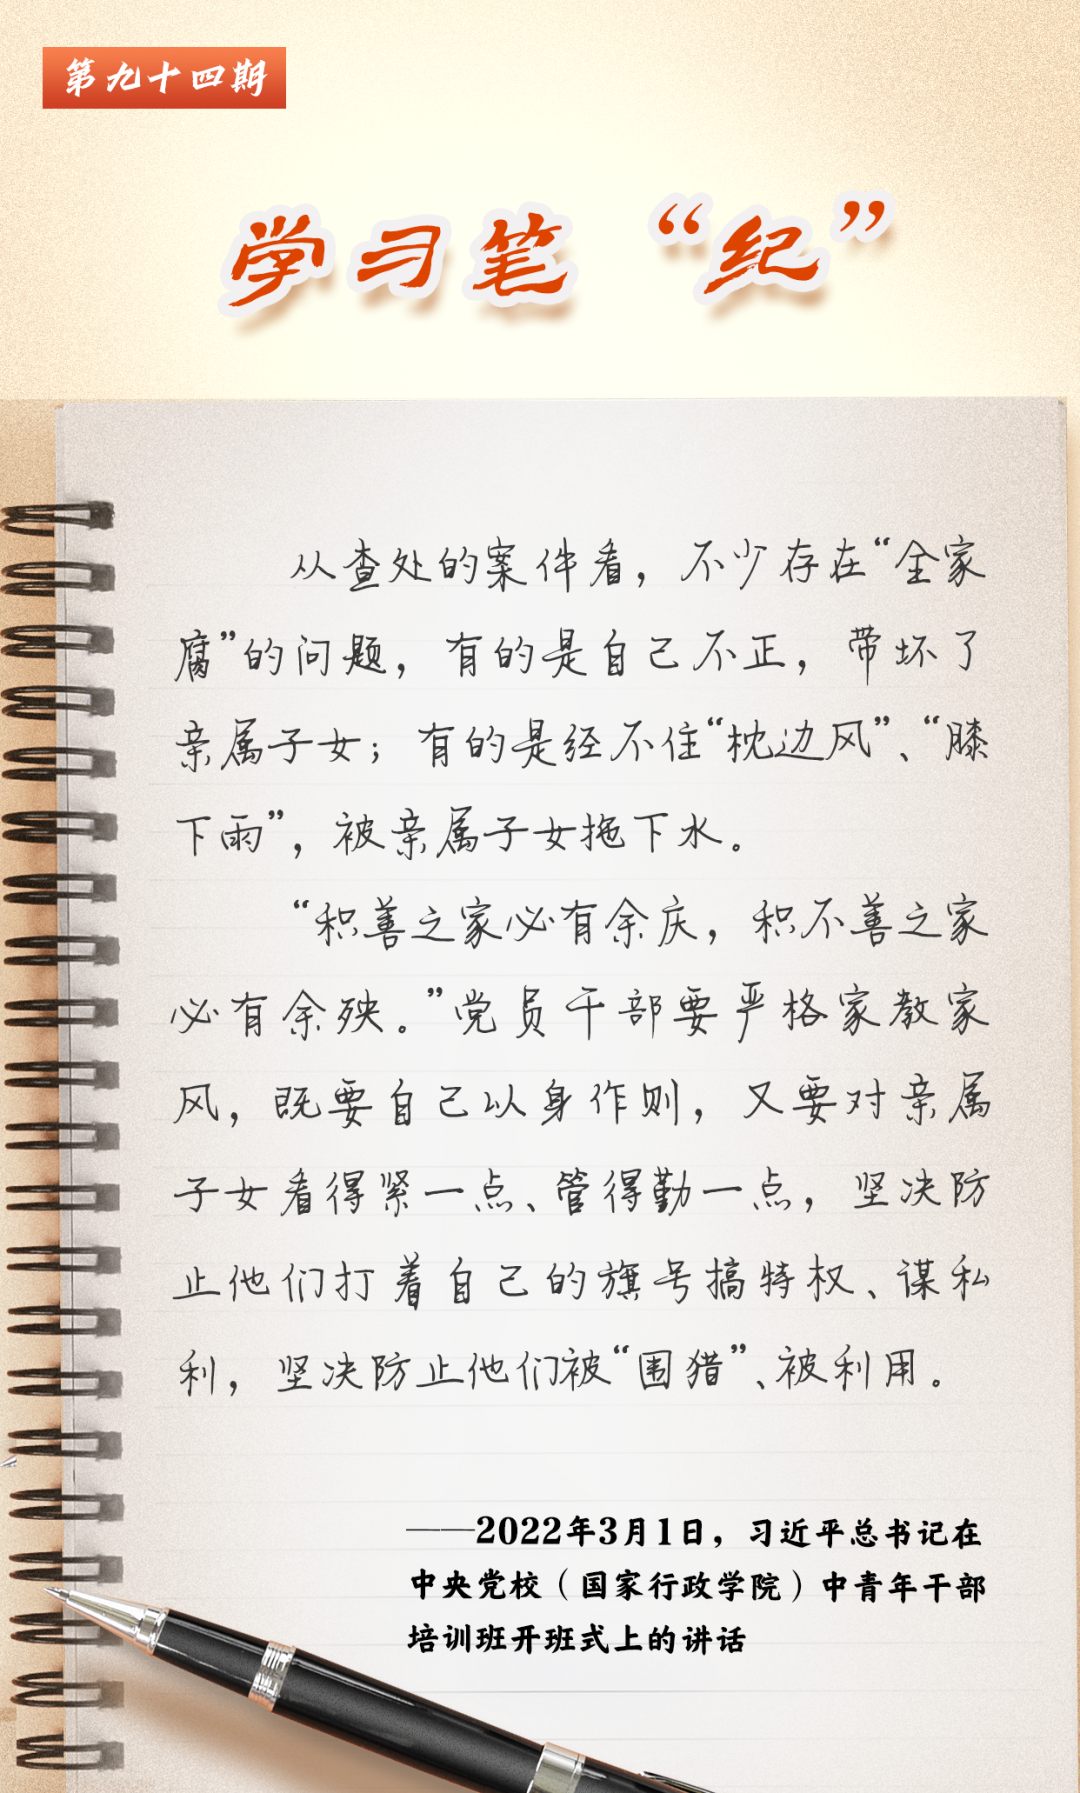 第九十四期
学习笔“纪”
从查处的案件看，不少存在“全家
腐”的问题，有的是自己不正，带坏了
亲属子女；有的是经不住“枕边风”、“膝
下雨”，被亲属子女拖下水。
“积善之家必有余庆，积不善之家
必有余殃。”党员干部要严格家教家
风，既要自己以身作则，又要对亲属
子女看得紧一点、管得勤一点，坚决防
止他们打着自己的旗号搞特权、谋私
利，坚决防止他们被“围猎”、被利用。
——2022年3月1日，习近平总书记在
中央党校（国家行政学院）中青年干部
培训班开班式上的讲话